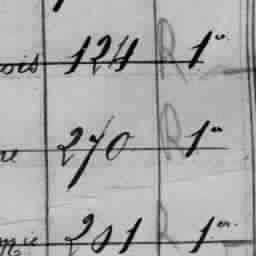 ois 124 R 1"
e 270 R 1"
mie 201 R 1er